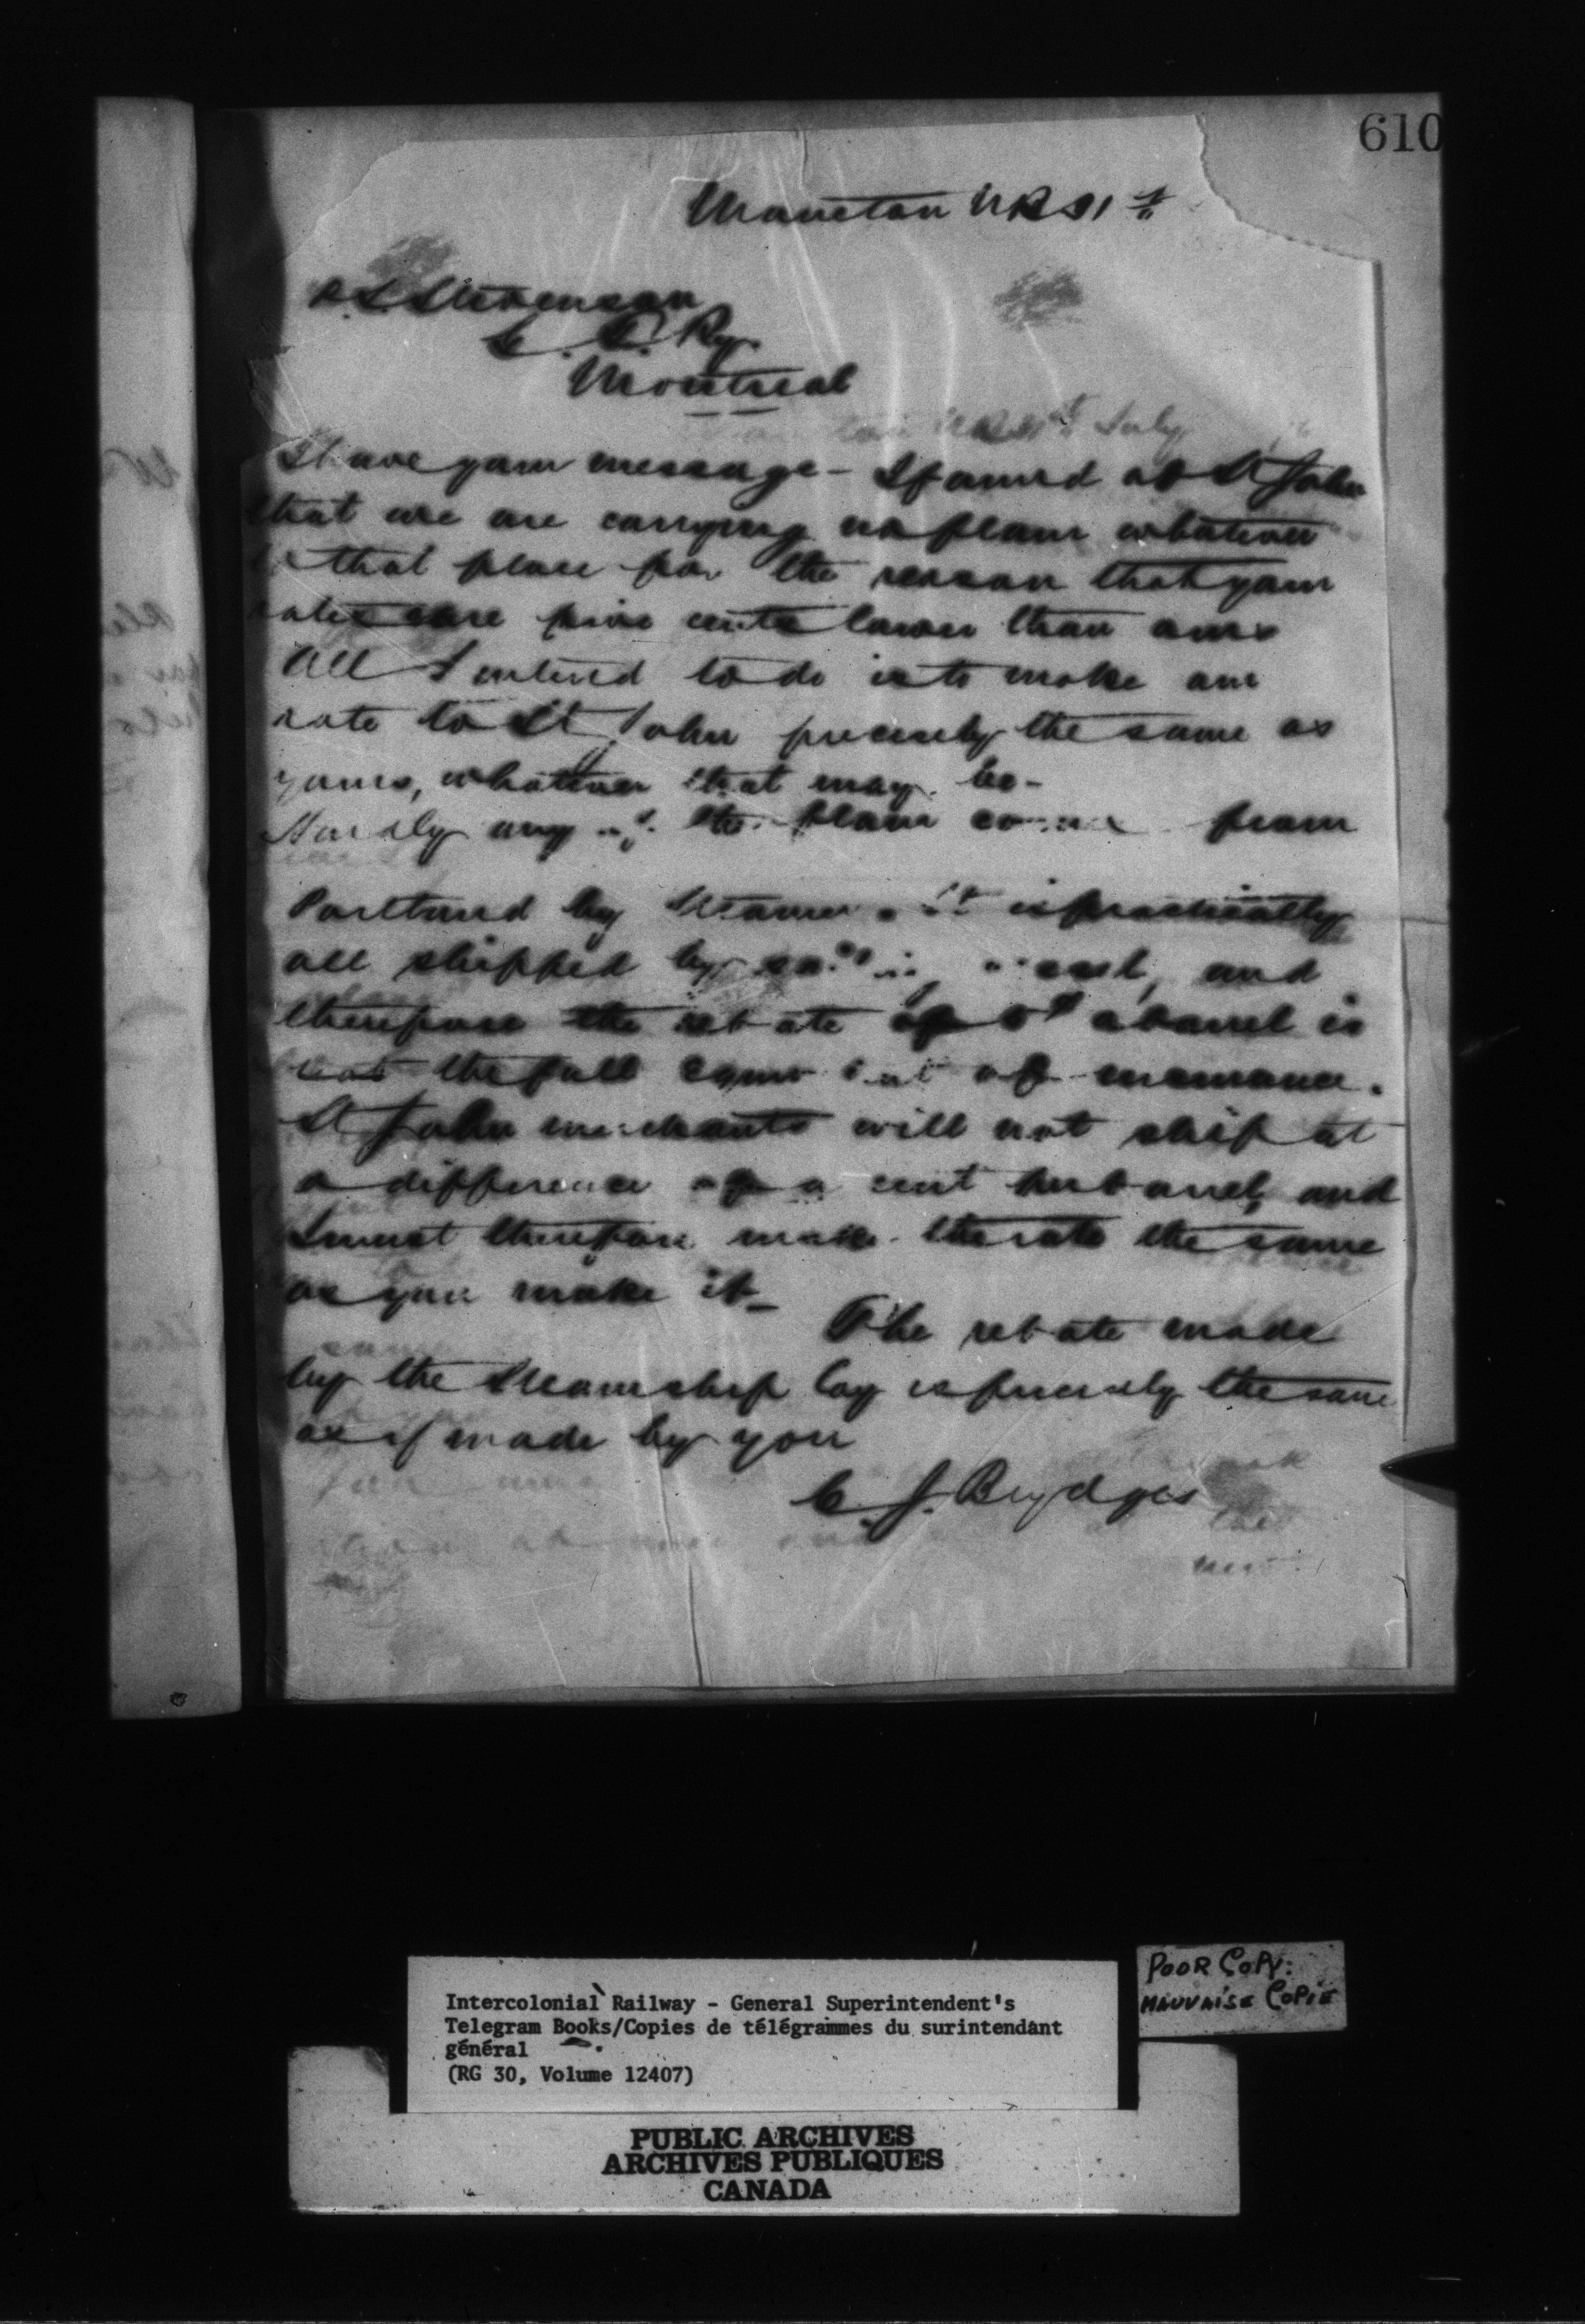 610
Moncton NB 31st
P.S. Stevenson
G. T. Ry.
Montreal
I have your message - I found at St John
that we are carrying no flour whatever
to that place for the reason that your
rates are five cents lower than ours
All I intend to do is to make our
rate to St John precisely the same as
yours, whatever that may be -
Hardly any of the flour comes from
Portland by Steamer. it is practically
all shipped by sailing vessel, and
therefore the rebate of 5¢ a barrel is
the full equivalent of insurance.
St John merchants will not ship at
a difference of a cent per barrel, and
I must therefore make the rate the same
as you make it -
The rebate made
by the Steamship Coy is precisely the same
as if made by you
C. J. Brydges
POOR COPY:
MAUVAISE COPIE
Intercolonial Railway - General Superintendent's
Telegram Books/Copies de télégrammes du surintendant
général
(RG 30, Volume 12407)
PUBLIC ARCHIVES
ARCHIVES PUBLIQUES
CANADA